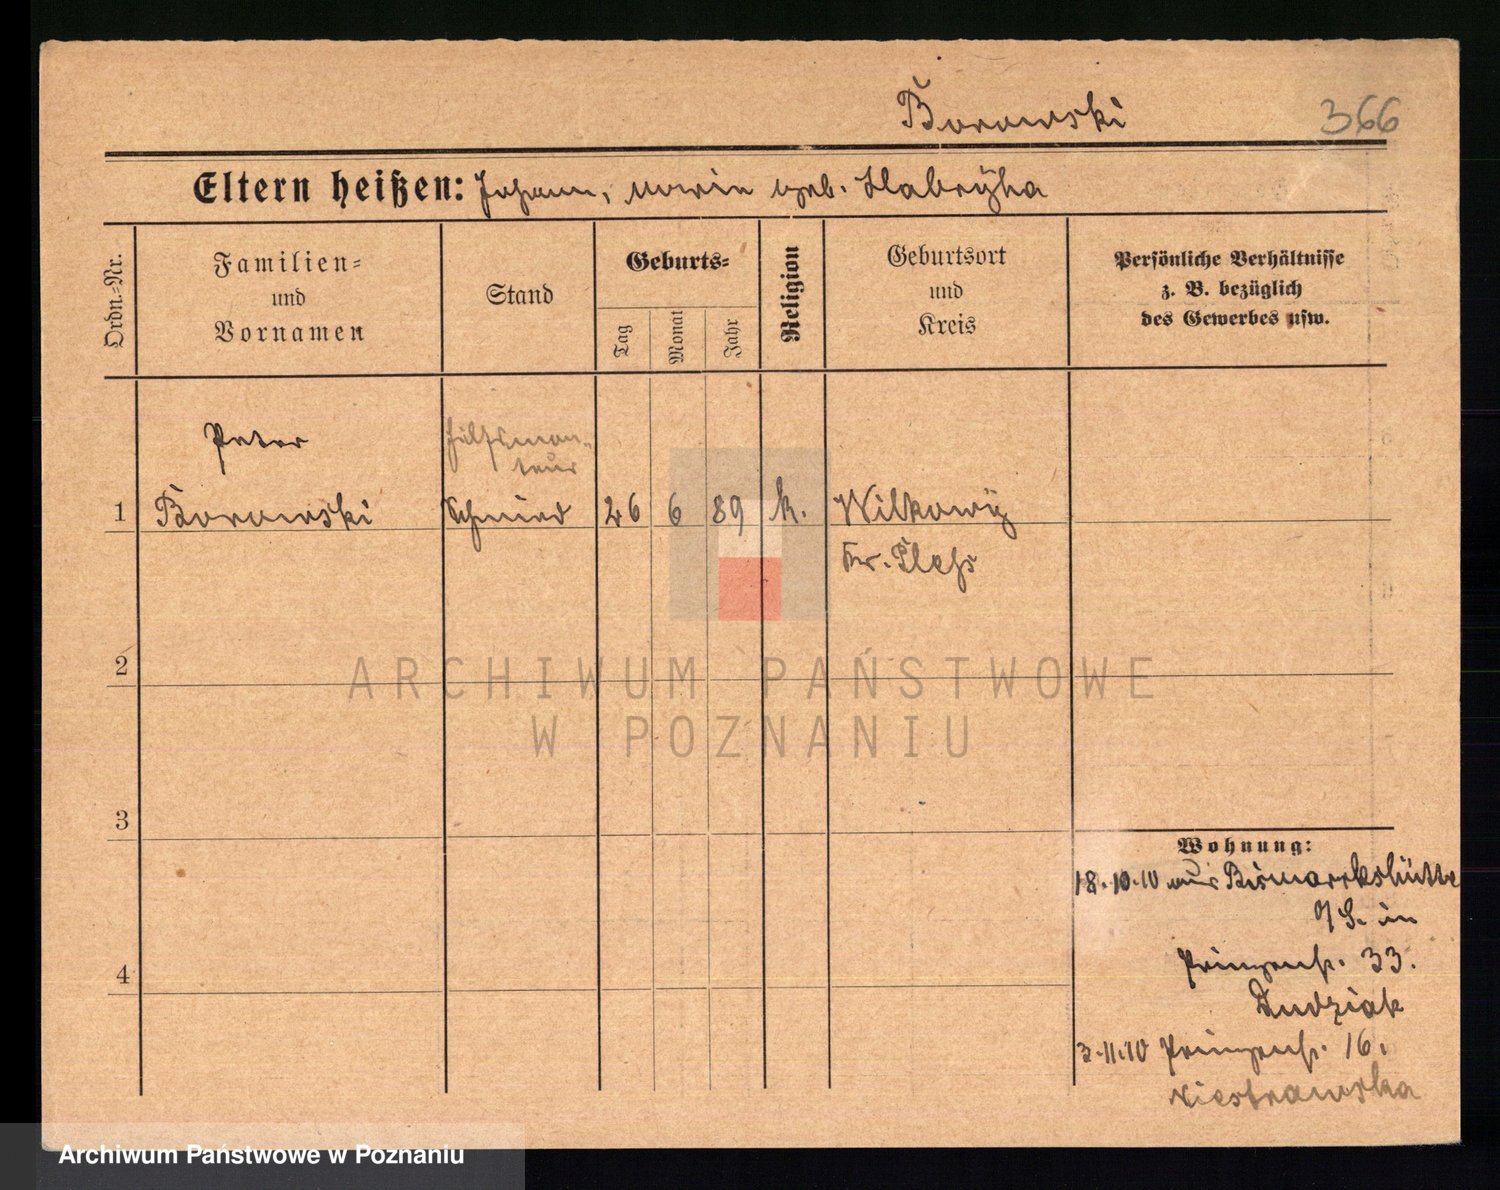 Borowski
366
Eltern heißen: Johann, Marie geb. Slabryka
Ordn.-Nr.
Familien-
und
Vornamen
Stand
Geburts-
Tag
Monat
Jahr
Religion
Geburtsort
und
Kreis
Persönliche Verhältnisse
z. B. bezüglich
des Gewerbes usw.
Peter
Hülfsmon-
teur
1 Borowski Schmied 26 6 89 k. Wilkowÿ
Kr. Pleß
2
ARCHIWUM PAŃSTWOWE
W POZNANIU
3
Wohnung:
18.10.10 aus Bismarckshütte
O/S. in
Prinzenstr. 33.
Dudziak
4
3.11.10 Prinzenstr. 16.
Niestrawska
Archiwum Państwowe w Poznaniu